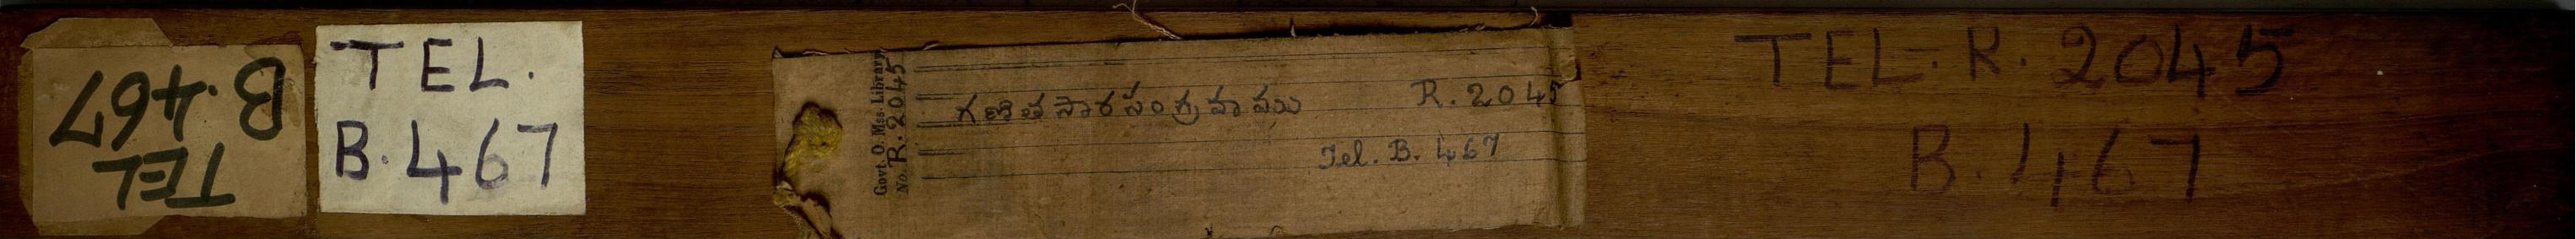 TEL
B.467
TEL.
B.467
Govt. O. Mss. Library
No. R. 2045
గణితసారసంగ్రహము R. 2045
Tel. B. 467
TEL. R. 2045
B.467